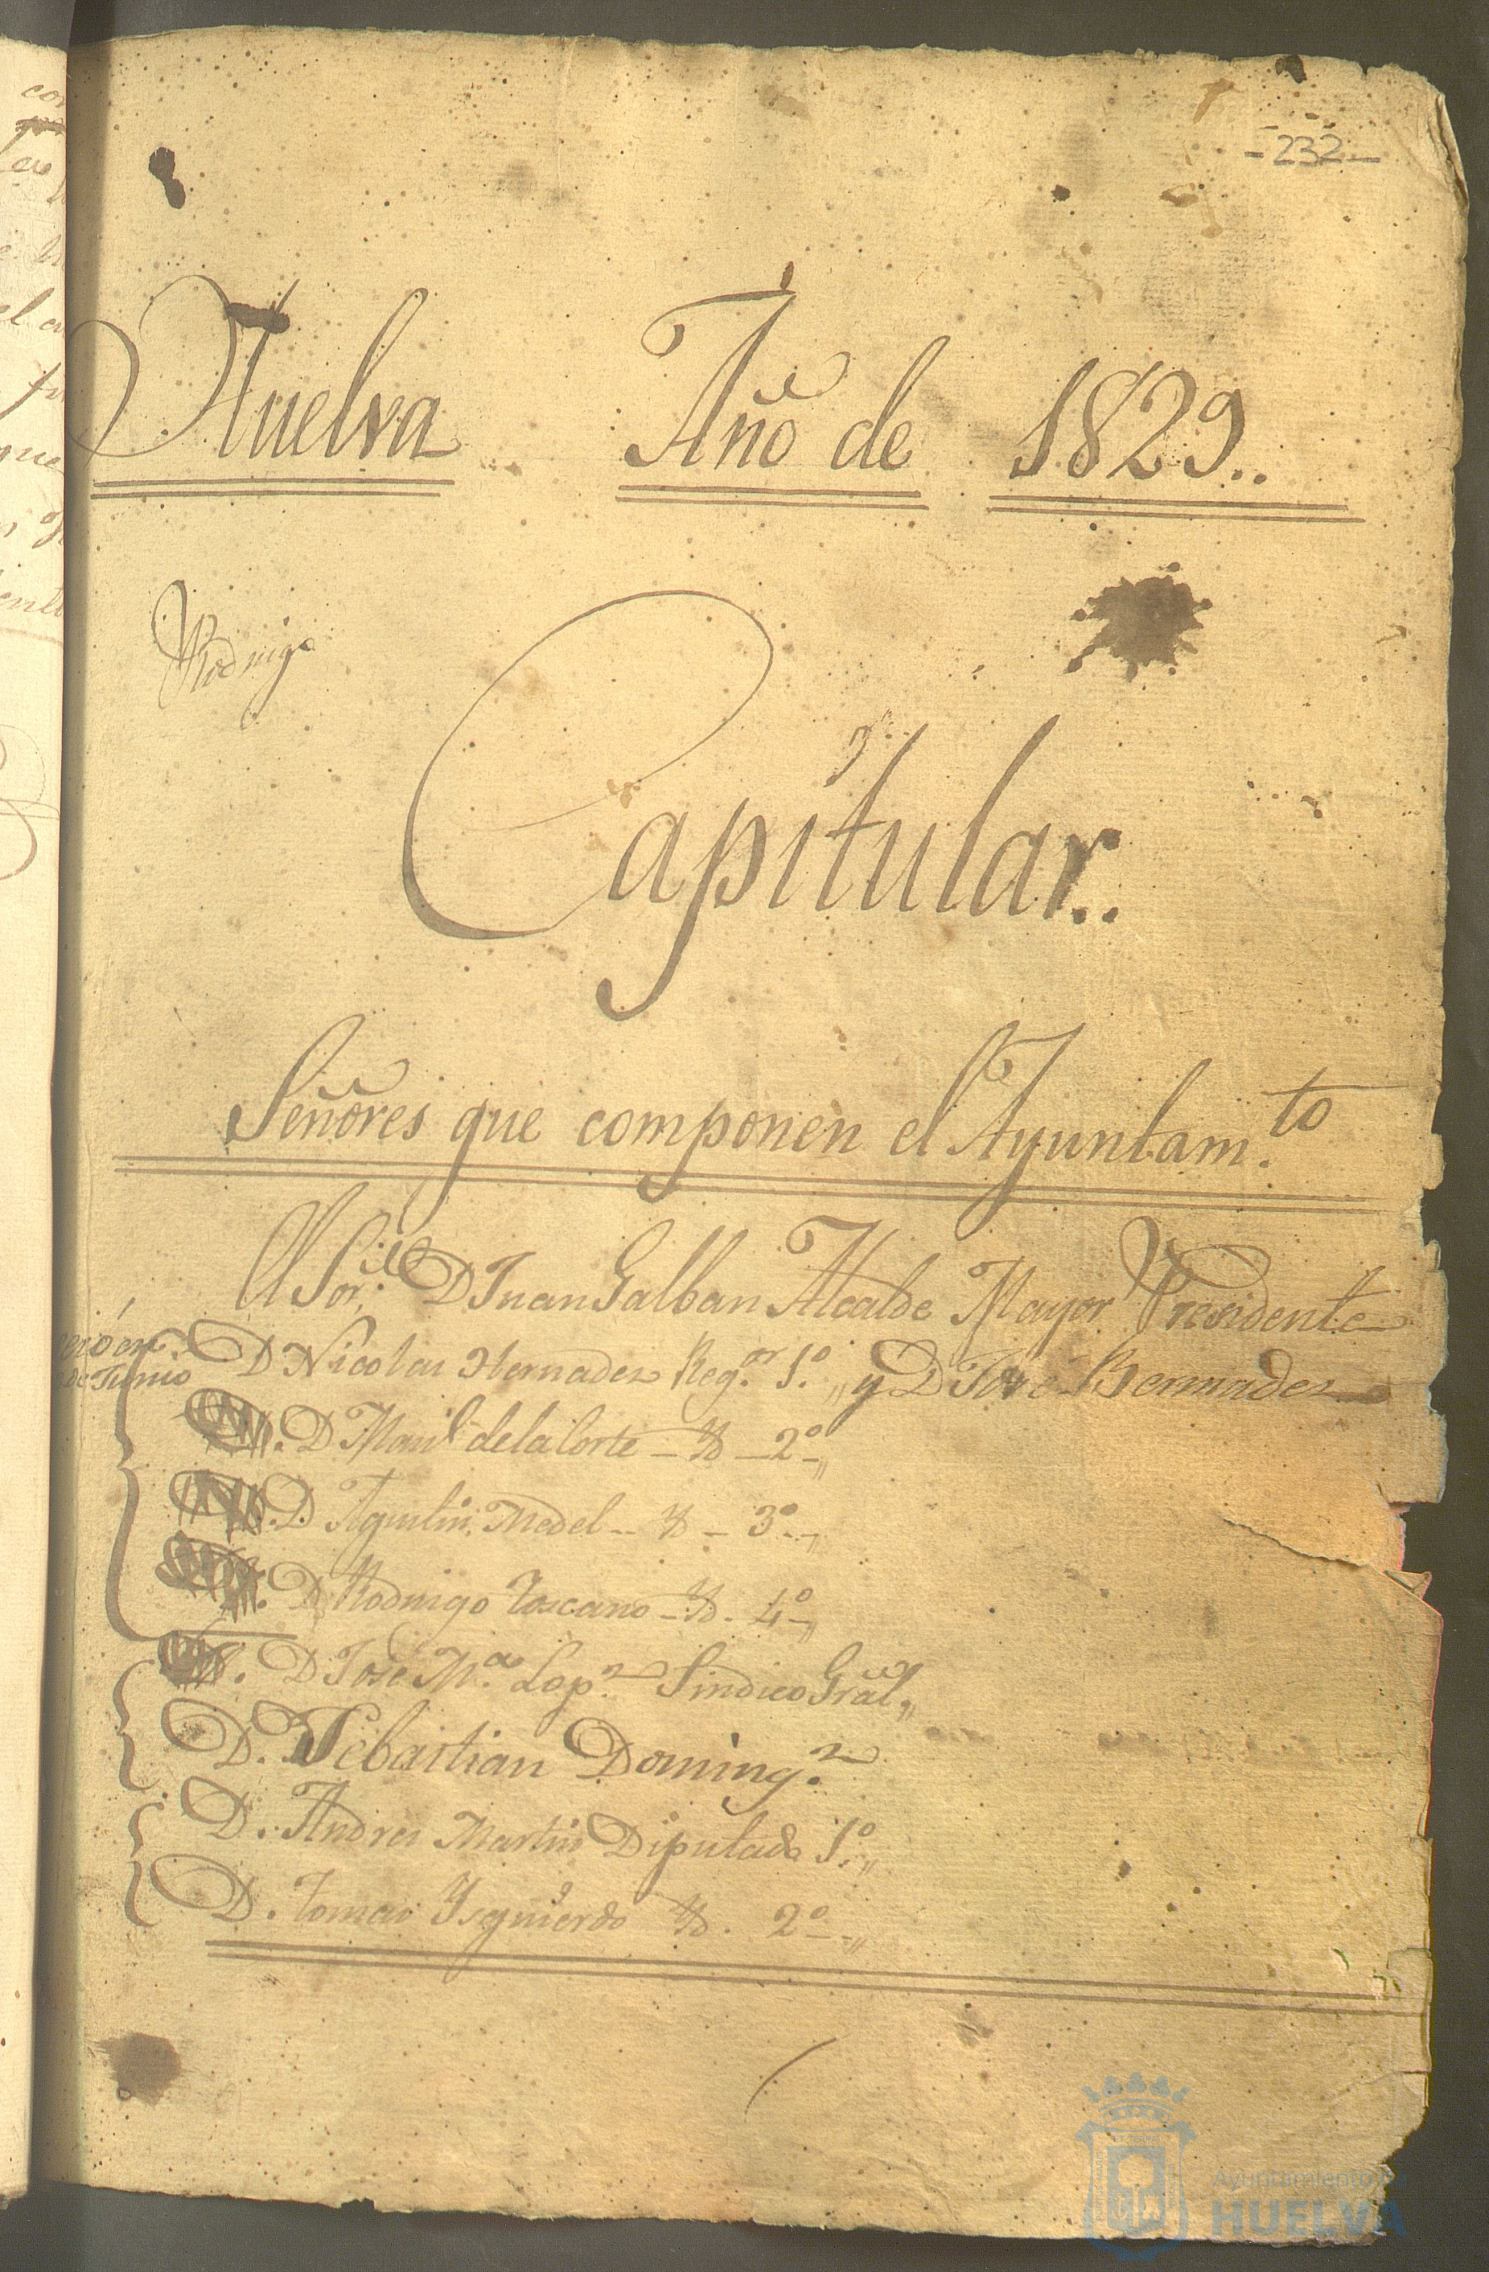 -232-
Huelva Año de 1829..
Rodrigo
Capitular..
Señores que componen el Ayuntam.to
El Sor. D Juan Galban Alcalde Mayor Presidente
D Nicolas Hernadez Reg.or 1.º y D Jose Bermudez
de Junio
D Man.l de la Corte - Yd - 2º
D. Agustin Medel - Yd - 3º
D Rodrigo Toscano - Yd. 4º
D Jose M.a Lop.z Sindico Gral
D. Sebastian Doming.z
D. Andres Martin Diputado 1.º
D. Tomas Ysquierdo Yd. 2º
Ayuntamiento de
HUELVA